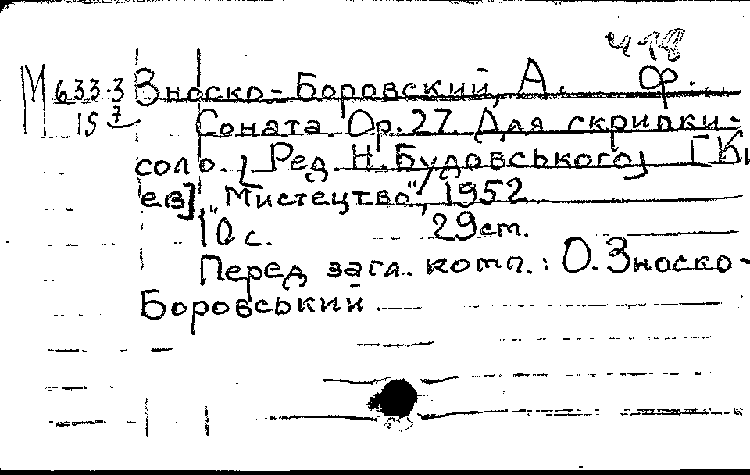 М 633-3 Зноско-Боровский, А. Ор.
15
Соната. Ор. 27. Для скрипки-
соло. / Ред. Н. Будовського/ [Ки
ев], "Мистецтво", 1952
10 с. 29 cm.
Перед загл. комп.: О. Зноско-
Боровський.